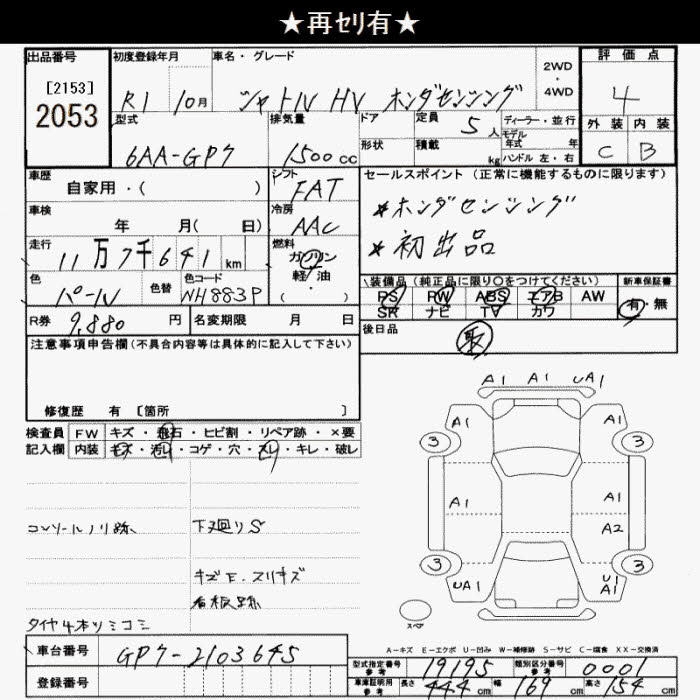 ★再ｾﾘ有★
出品番号 初度登録年月 車名・グレード 2WD・4WD 評価点
[2153]
2053
R1 10月 シャトル HV ホンダセンシング 4
型式 排気量 ドア 定員 5人 ディーラー・並行 外装 内装
モデル年式 年
6AA-GP7 1500cc 形状 積載 kg ハンドル 左・右 C B
車歴 シフト セールスポイント(正常に機能するものに限ります)
自家用・( ) FAT
★ホンダセンシング
車検 冷房
年 月( 日) AAC
★初出品
走行 燃料
11万7千641km ガソリン
軽油
・( )
色 色替 色コード
パール NH883P
装備品(純正品に限り○をつけてください) 新車保証書
PS PW ABS エアB AW 有・無
SR ナビ TV カワ
R券 9,880円 名変期限 月 日
後日品 取
注意事項申告欄(不具合内容等は具体的に記入して下さい)
修復歴 有 [箇所 ]
A1 A1 UA1
A1 A1
3 3
A1 A1
A2
3 3
UA1 UA1
スペア
検査員 FW キズ・飛石・ヒビ割・リペア跡・×要
記入欄 内装 キズ・汚れ・コゲ・穴・スレ・キレ・破レ
コンソールノリ跡 下廻りS
キズE.スリキズ
看板跡
タイヤ4本ツミコミ
A-キズ E-エクボ U-凹み W-補修跡 S-サビ C-腐食 XX-交換済
車台番号 GP7-2103645
登録番号
型式指定番号 参考 19195 類別区分番号 参考 0001
車庫証明用 参考 長さ 444cm 幅 169cm 高さ 154cm